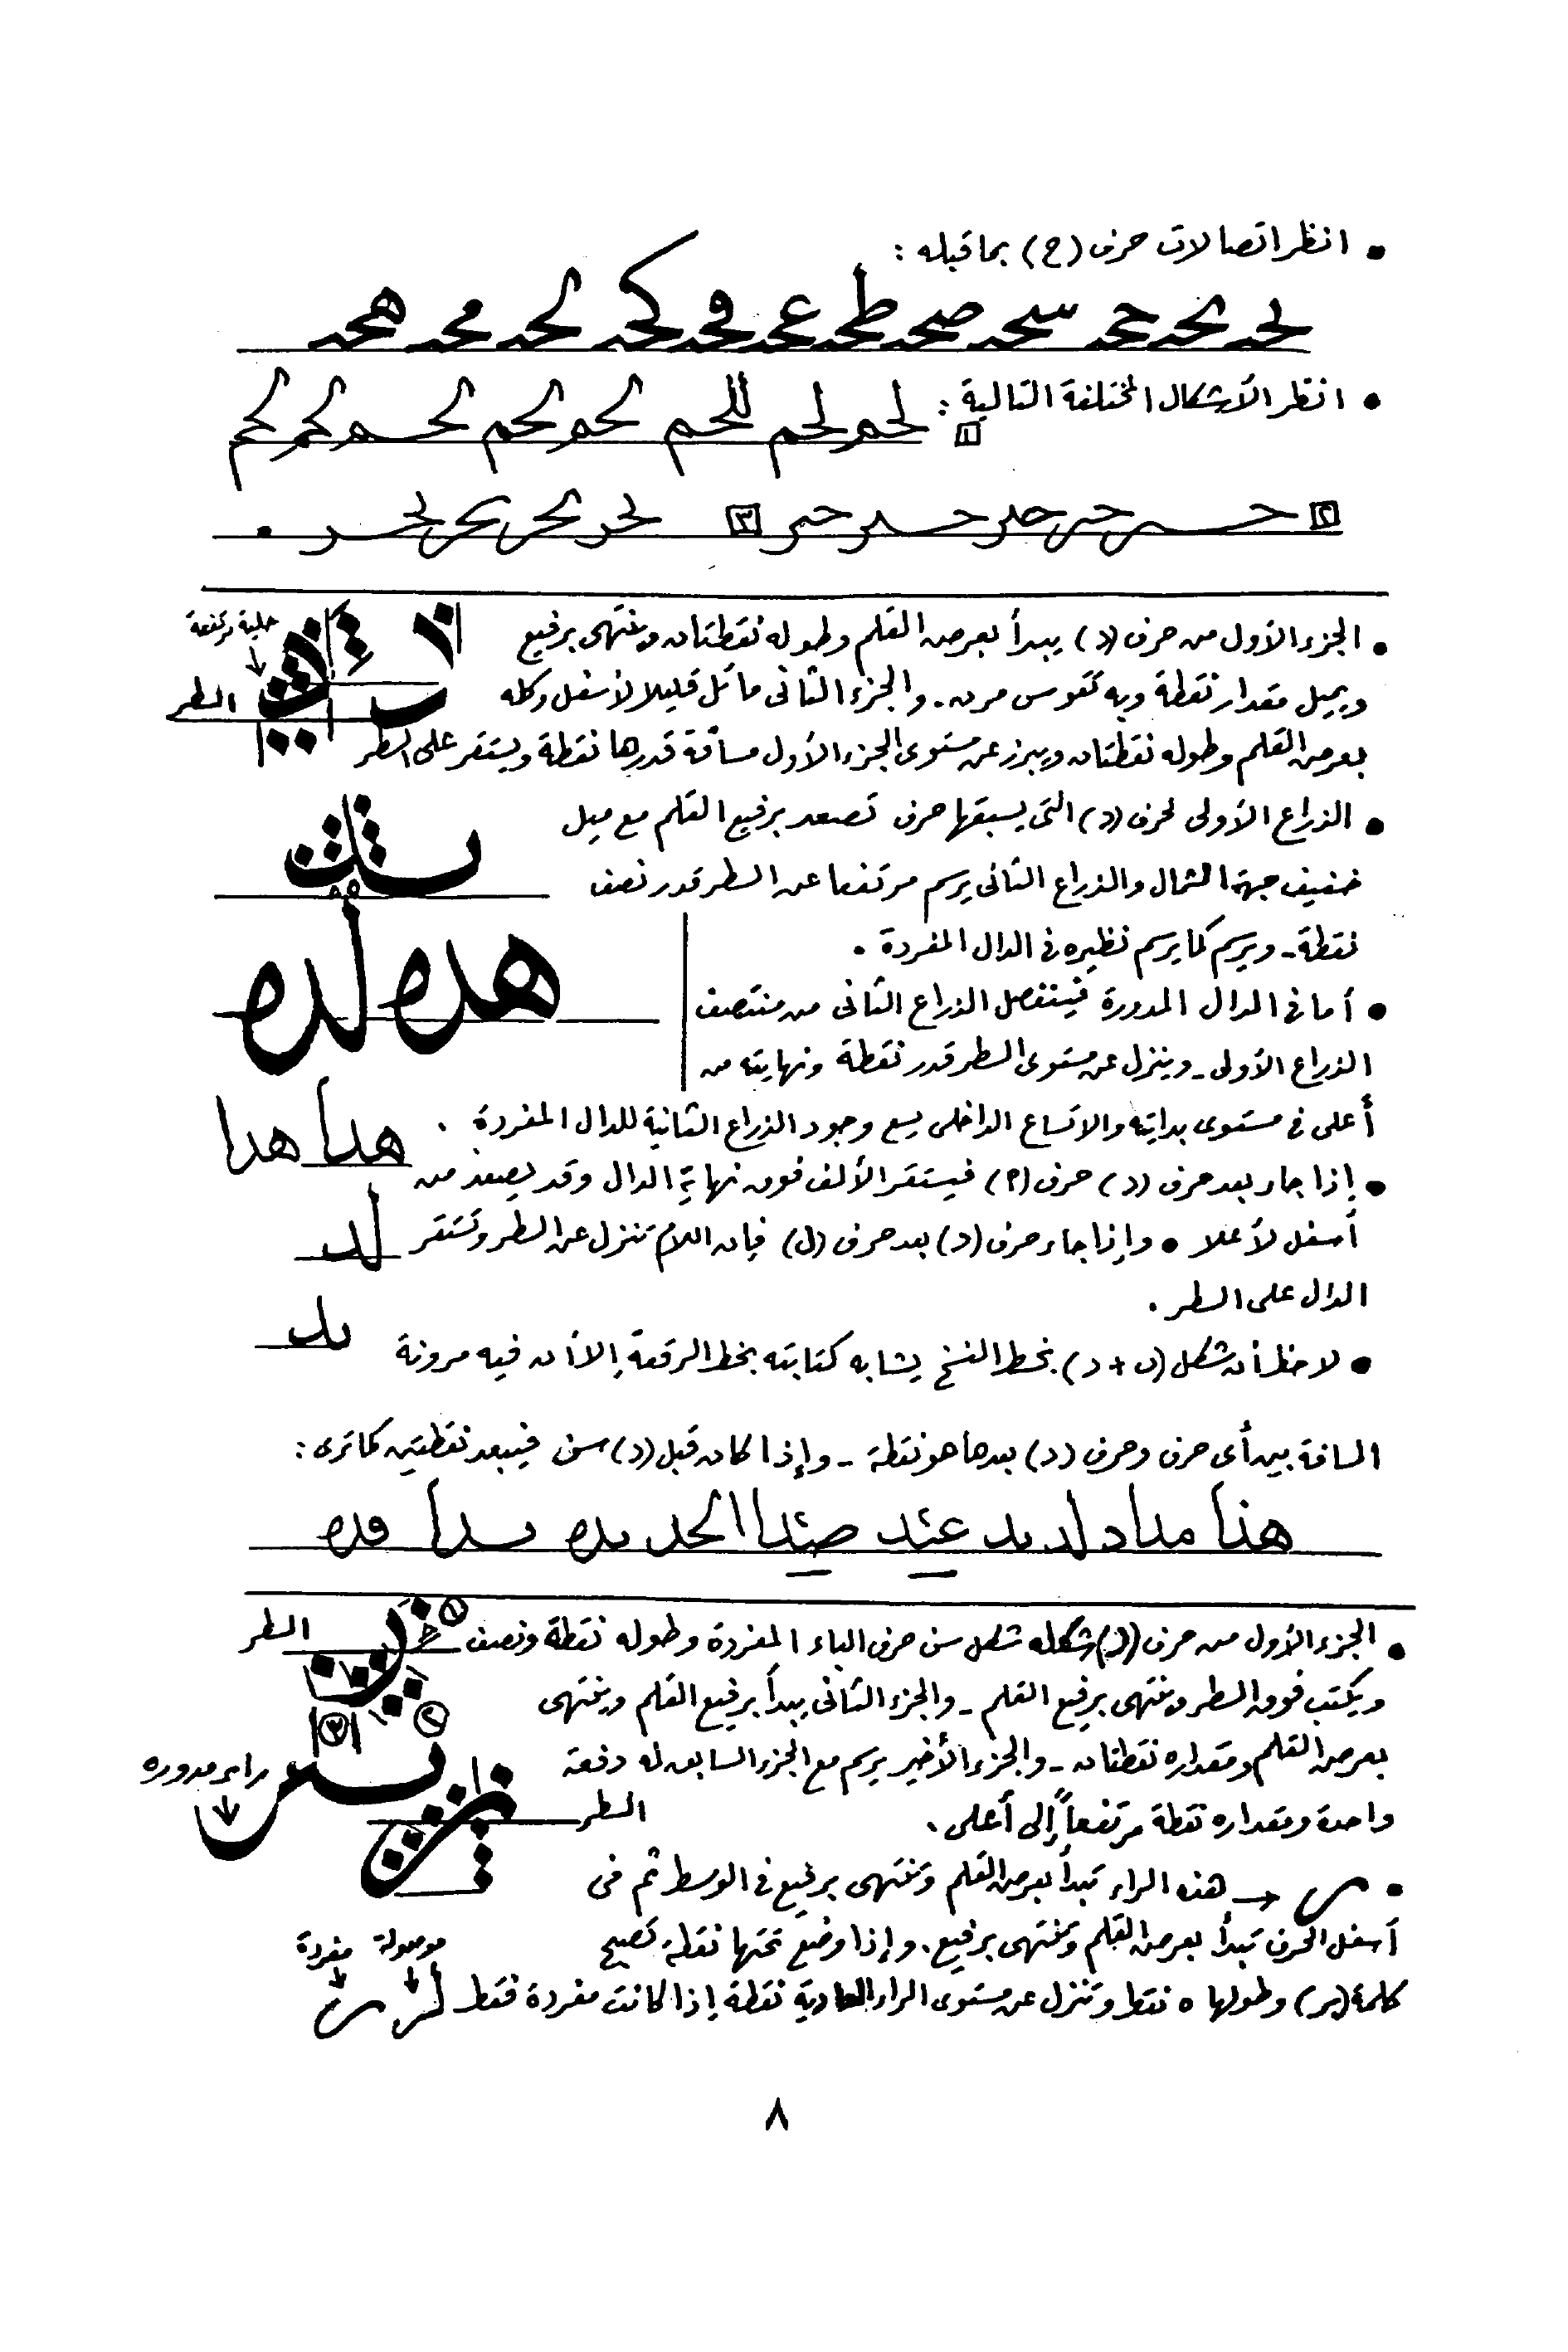 • انظر اتصالات حرف (ح) بما قبله :
• انظر الأشكال المختلفة التالية :
١
٢
٣
• الجزء الأول من حرف (د) يبدأ بعرض القلم وطوله نقطتان وينتهى برفيع
حلية مرتفعة
ويميل مقدار نقطة وبه تقوس مرن . والجزء الثانى مائل قليلا لأسفل وكله
السطر
بعرض القلم وطوله نقطتان ويبرز عن مستوى الجزء الأول مسافة قدرها نقطة ويستقر على السطر
• الذراع الأولى لحرف (د) التى يسبقها حرف تصعد برفيع القلم مع ميل
خفيف جهة الشمال والذراع الثانى يرسم مرتفعا عن السطر قدر نصف
نقطة - ويرسم كما يرسم نظيره فى الدال المفردة .
هده لده
• أما فى الدال المدورة فينفصل الذراع الثانى من منتصف
الذراع الأولى - وينزل عن مستوى السطر قدر نقطة ونهايته من
أعلى فى مستوى بدايته والاتساع الداخلى يسع وجود الذراع الثانية للدال المفردة .
هدا هدا
• إذا جاء بعد حرف (د) حرف (ا) فيستقر الألف فوق نهاية الدال وقد يصعد من
أسفل لأعلا • وإذا جاء حرف (د) بعد حرف (ل) فإن اللام تنزل عن السطر وتستقر
لد
الدال على السطر .
• لاحظ أن شكل (ں + د) بخط النسخ يشابه كتابته بخط الرقعة إلا أن فيه مرونة
المسافة بين أى حرف وحرف (د) بعدها هو نقطة - وإذا كان قبل (د) سن فيبعد نقطتين كما ترى :
• الجزء الأول من حرف (ر) شكله شكل سن حرف الباء المفردة وطوله نقطة ونصف
السطر
١
ويكتب فوق السطر وينتهى برفيع القلم - والجزء الثانى يبدأ برفيع القلم وينتهى
٢
٣
بعرض القلم ومقداره نقطتان - والجزء الأخير يرسم مع الجزء السابق له دفعة
راء مدوره
واحدة ومقداره نقطة مرتفعاً إلى أعلى .
السطر
• ر → هذه الراء تبدأ بعرض القلم وتنتهى برفيع فى الوسط ثم فى
أسفل الحرف تبدأ بعرض القلم وتنتهى برفيع . وإذا وضع تحتها نقطة تصبح
موصولة مفردة
كلمة (بر) وطولها ٥ نقط وتنزل عن مستوى الراء العادية نقطة إذا كانت مفردة فقط
٨